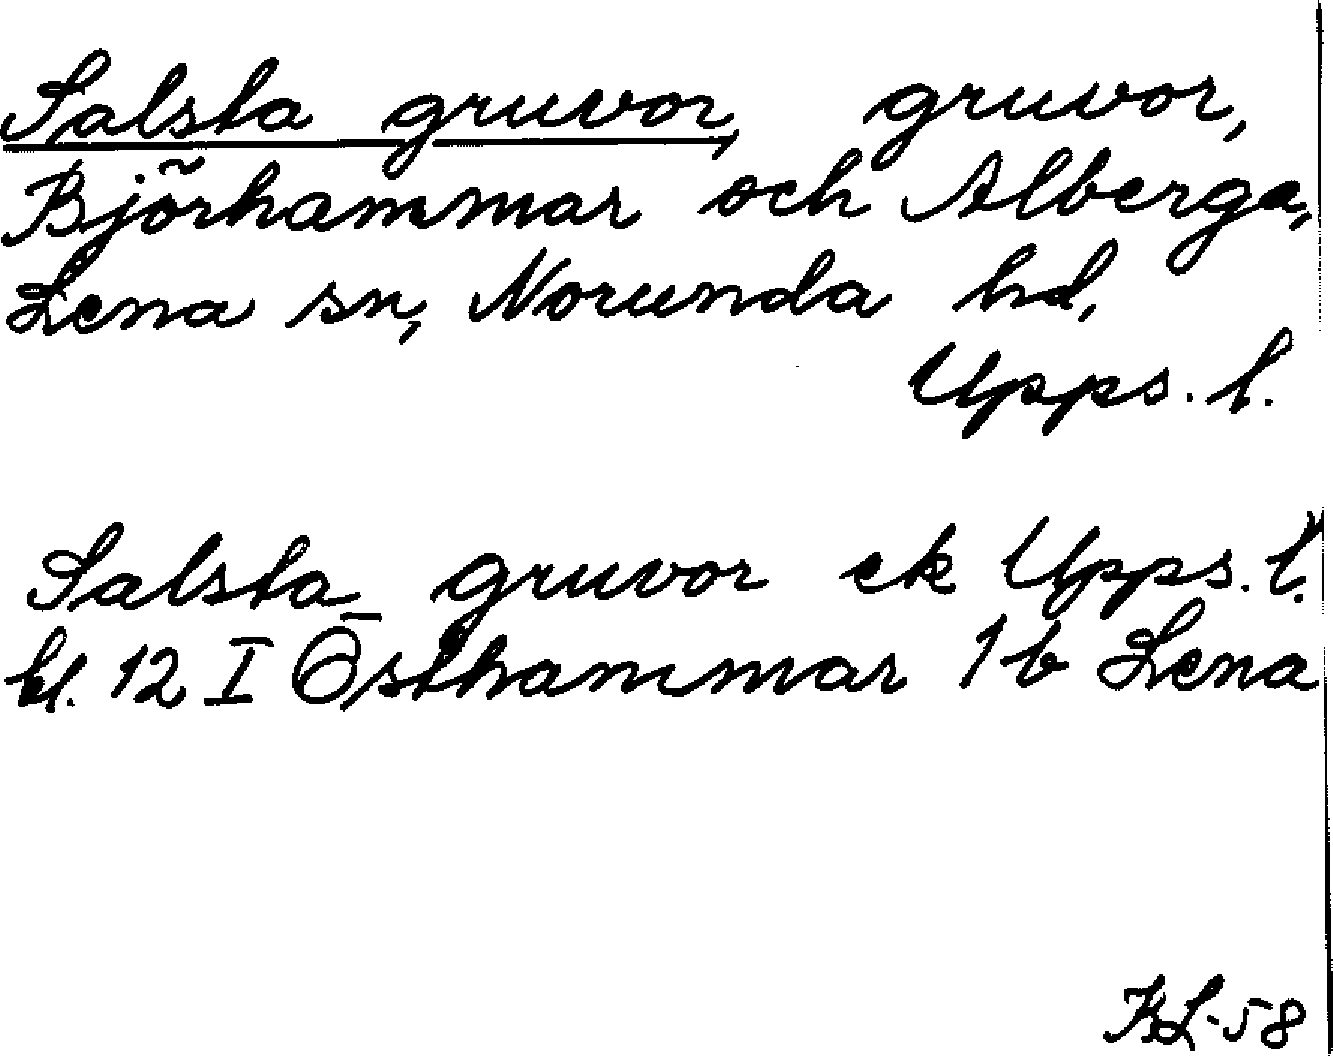 Salsta gruvor, gruvor,
Björhammar och Alberga,
Lena sn, Norunda hd,
Upps. l.
Salsta gruvor ek Upps. l.
bl. 12 I Östhammar 1b Lena
KL-58